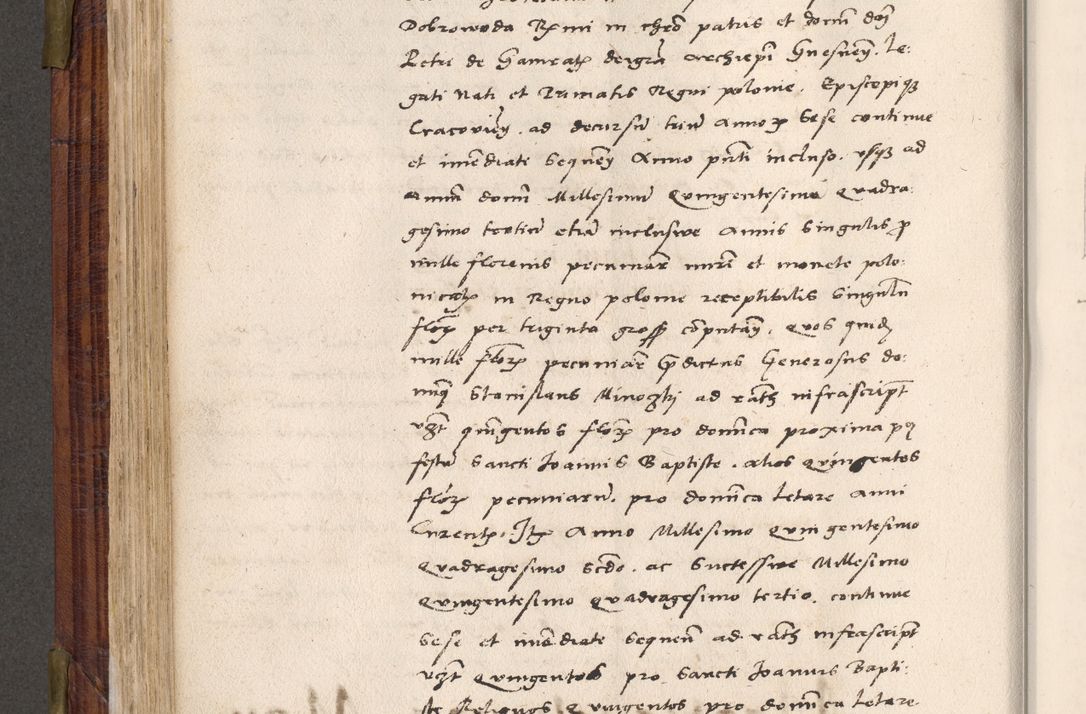 Dobrowoda Rx̃mi in chr̃o patris et domĩ dnĩ
Petri de Gamratꝝ dei gr̃a Archiep̃i Gnesneñ. Le:
gati Nati et Primatis Regni polonie. Episcopiqꝫ
Cracovieñ. ad decursũ triũ Annoꝝ sese continue
et im̃ediate sequeñ Anno pñti incluso. vsqꝫ ad
annũ domĩ Millesimũ Quingentesimũ Quadra:
gesimo tertiũ etiã inclusive Annis singulis p
mille florenis pecuniarũ num̃i et monete polo:
nicalꝫ in Regno polonie receptibilis singulũ
floꝝ per triginta gross̃ cõputañ. Quos quidẽ
mille floꝝ pecuniaꝝ p̃dictus Generosus do:
minꝰ Stanislaus Minoczki ad rath̃ infrascript̃
vꝫt quĩgentos floꝝ pro domĩca proxima pꝰ
festũ Sancti Joannis Baptiste. alios Quingentos
floꝝ pecuniarũ. pro domĩca letare Anni
Currentꝫ. Itꝫ Anno Millesimo Quingentesimo
Quadragesimo Scd̃o. ac Successive Millesimo
Quingentesimo Quadragesimo tertio. continue
sese et im̃ediate sequeñ ad rath̃ infrascript̃
vꝫt Quingentos pro Sancti Joannis Bapti:
ste Reliquos Quingentos pro domĩca letare